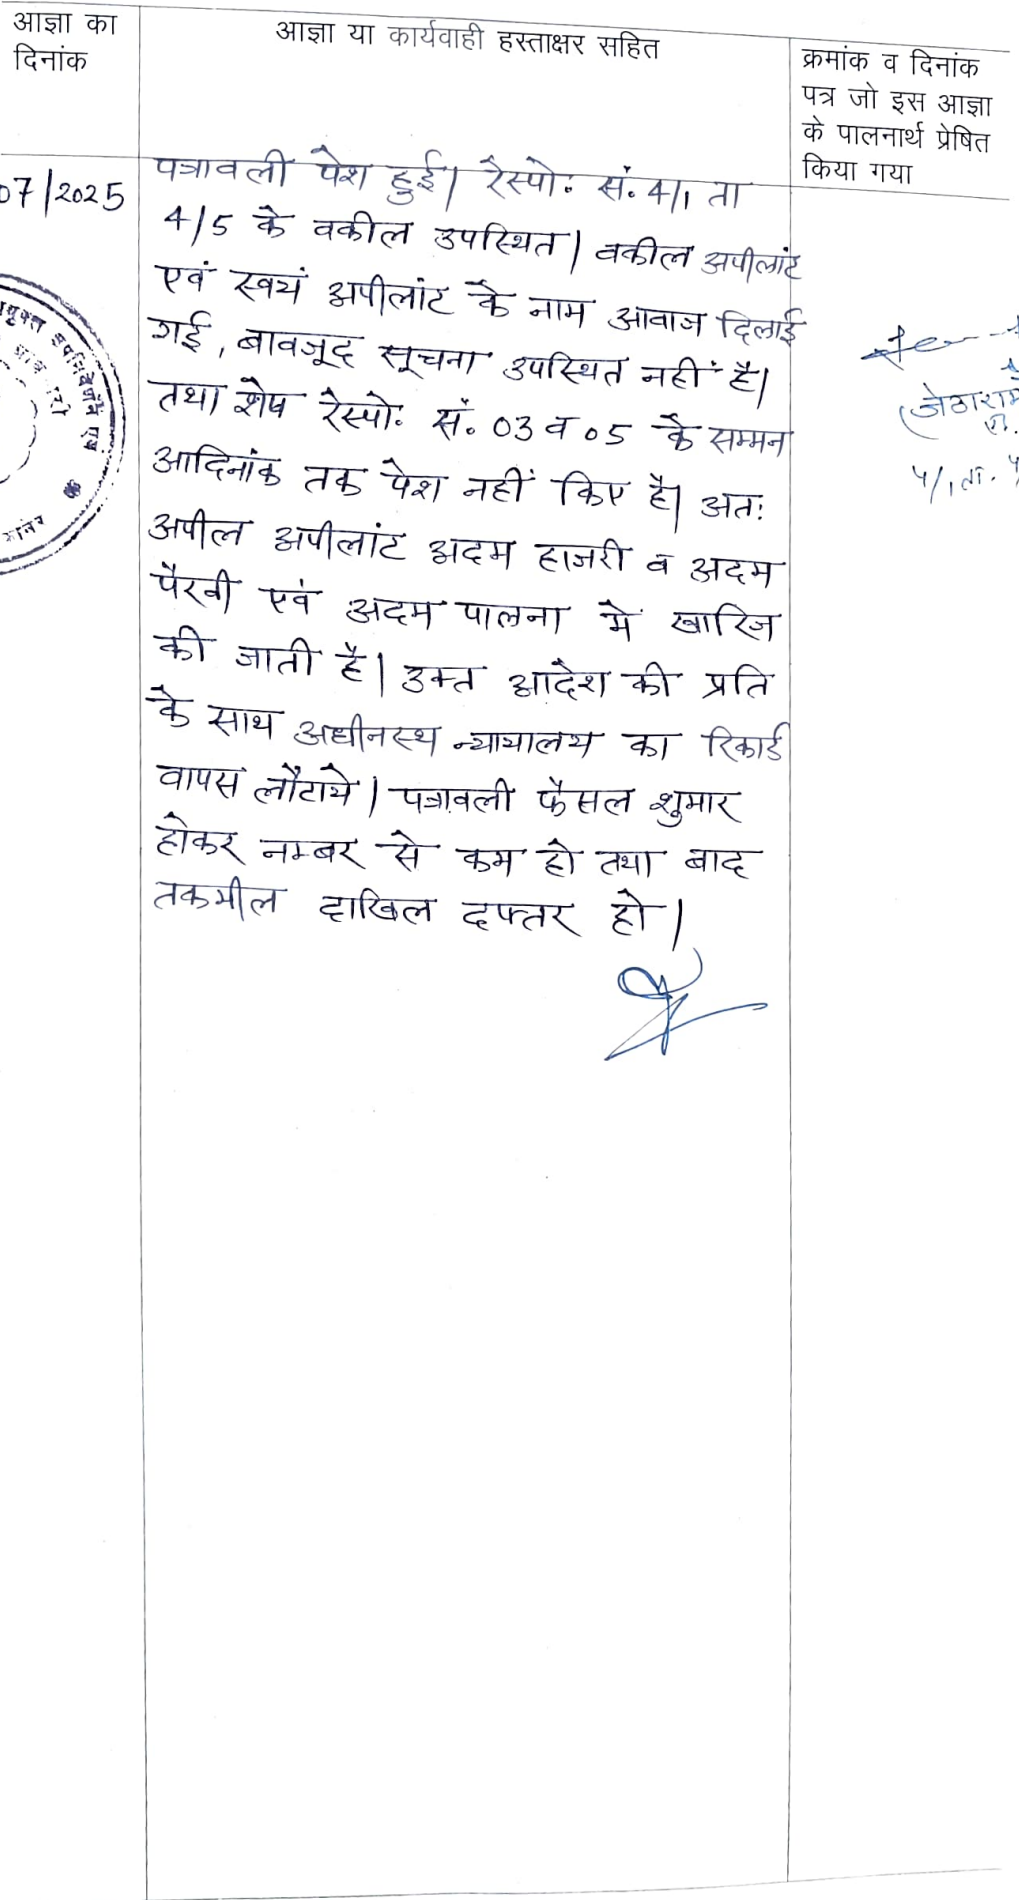 आज्ञा का
दिनांक
आज्ञा या कार्यवाही हस्ताक्षर सहित
क्रमांक व दिनांक
पत्र जो इस आज्ञा
के पालनार्थ प्रेषित
किया गया
07/2025
पत्रावली पेश हुई। रेस्पो. सं. 4/1 ता
4/5 के वकील उपस्थित। वकील अपीलांट
एवं स्वयं अपीलांट के नाम आवाज दिलाई
गई, बावजूद सूचना उपस्थित नहीं है।
तथा शेष रेस्पो. सं. 03 व 05 के सम्मन
आदिनांक तक पेश नहीं किए है। अतः
अपील अपीलांट अदम हाजरी व अदम
पैरवी एवं अदम पालना में खारिज
की जाती है। उक्त आदेश की प्रति
के साथ अधीनस्थ न्यायालय का रिकार्ड
वापस लौटाये। पत्रावली फैसल शुमार
होकर नम्बर से कम हो तथा बाद
तकमील दाखिल दफ्तर हो।
उपनिवेशन एवं
(जेठाराम
4/1 ता.